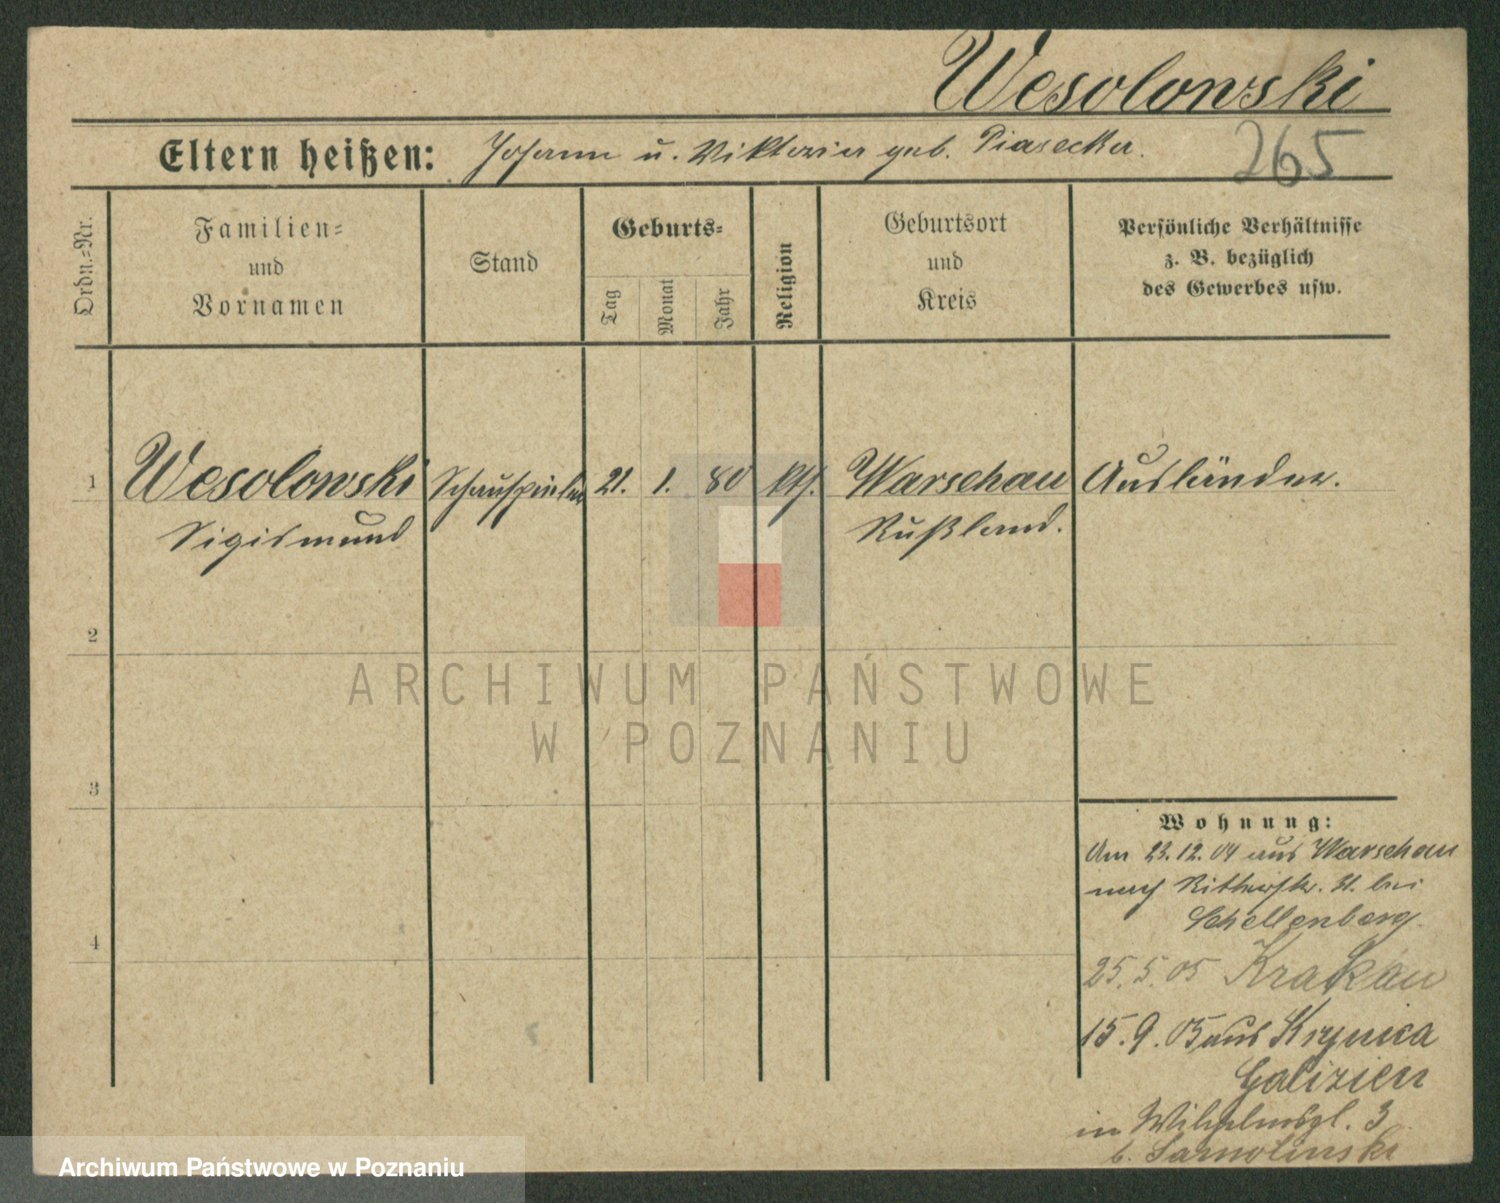 Wesolowski
Eltern heißen: Johann u. Viktoria geb. Piasecka.
265
Ordn.-Nr.
Familien-
und
Vornamen
Stand
Geburts-
Tag
Monat
Jahr
Religion
Geburtsort
und
Kreis
Persönliche Verhältnisse
z. B. bezüglich
des Gewerbes usw.
1 Wesolowski Schauspieler 21. 1. 80 kth. Warschau Ausländer.
Sigismund Rußland.
2
ARCHIWUM PAŃSTWOWE
W POZNANIU
3
Wohnung:
Am 23.12.04 aus Warschau
nach Ritterstr. 31. bei
Schellenberg
4
25.5.05 Krakau
15.9.05 aus Krynica
Galizien
in Wilhelmspl. 3
b. Sarnolinski
Archiwum Państwowe w Poznaniu